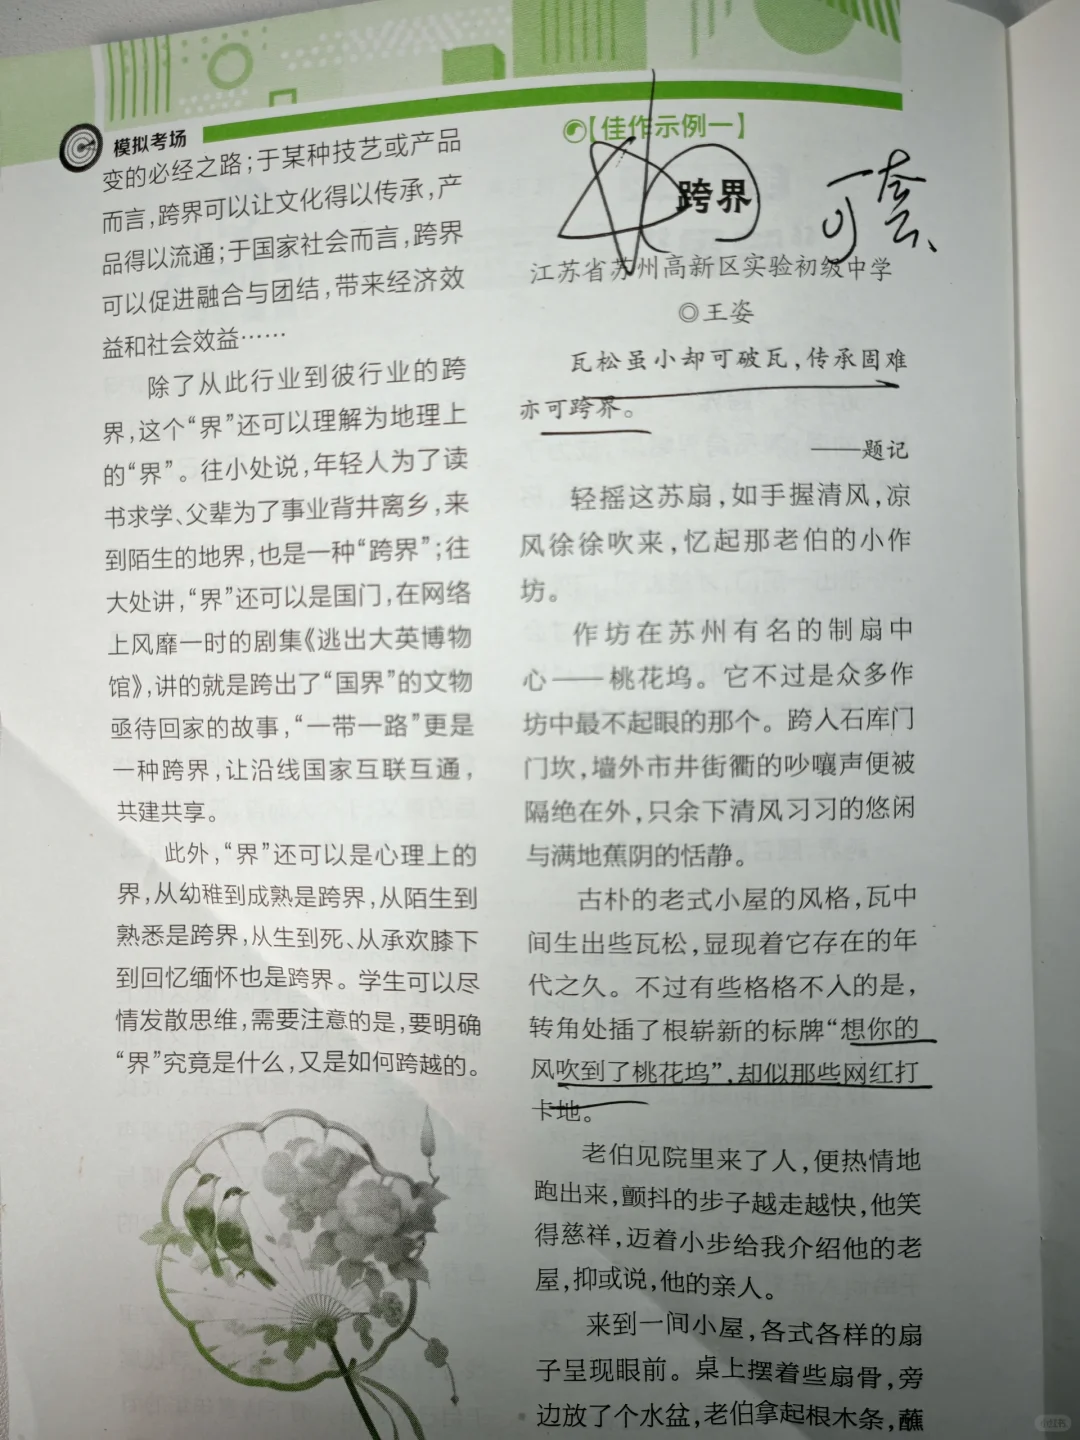 模拟考场
变的必经之路；于某种技艺或产品
而言，跨界可以让文化得以传承，产
品得以流通；于国家社会而言，跨界
可以促进融合与团结，带来经济效
益和社会效益……
除了从此行业到彼行业的跨
界，这个“界”还可以理解为地理上
的“界”。往小处说，年轻人为了读
书求学、父辈为了事业背井离乡，来
到陌生的地界，也是一种“跨界”；往
大处讲，“界”还可以是国门，在网络
上风靡一时的剧集《逃出大英博物
馆》，讲的就是跨出了“国界”的文物
亟待回家的故事，“一带一路”更是
一种跨界，让沿线国家互联互通，
共建共享。
此外，“界”还可以是心理上的
界，从幼稚到成熟是跨界，从陌生到
熟悉是跨界，从生到死、从承欢膝下
到回忆缅怀也是跨界。学生可以尽
情发散思维，需要注意的是，要明确
“界”究竟是什么，又是如何跨越的。
【佳作示例一】
跨界
可套
江苏省苏州高新区实验初级中学
◎王姿
瓦松虽小却可破瓦，传承固难
亦可跨界。
——题记
轻摇这苏扇，如手握清风，凉
风徐徐吹来，忆起那老伯的小作
坊。
作坊在苏州有名的制扇中
心——桃花坞。它不过是众多作
坊中最不起眼的那个。跨入石库门
门坎，墙外市井街衢的吵嚷声便被
隔绝在外，只余下清风习习的悠闲
与满地蕉阴的恬静。
古朴的老式小屋的风格，瓦中
间生出些瓦松，显现着它存在的年
代之久。不过有些格格不入的是，
转角处插了根崭新的标牌“想你的
风吹到了桃花坞”，却似那些网红打
卡地。
老伯见院里来了人，便热情地
跑出来，颤抖的步子越走越快，他笑
得慈祥，迈着小步给我介绍他的老
屋，抑或说，他的亲人。
来到一间小屋，各式各样的扇
子呈现眼前。桌上摆着些扇骨，旁
边放了个水盆，老伯拿起根木条，蘸